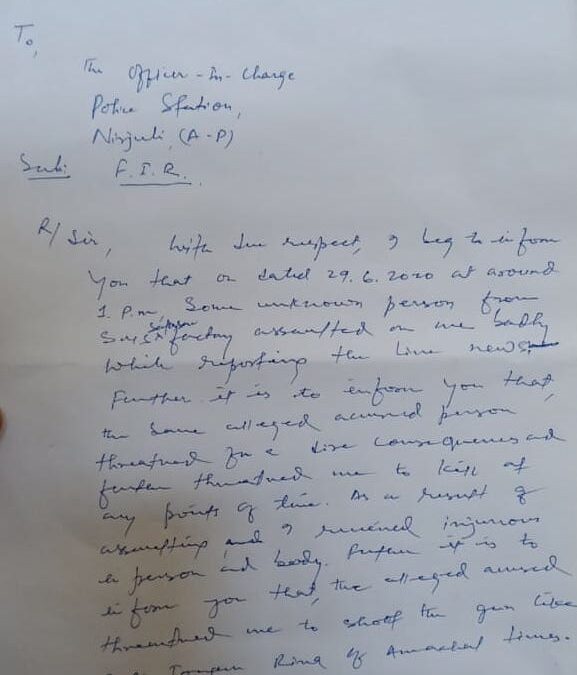 To,
The Officer-In-Charge
Police Station,
Nirjuli, (A-P)
Sub: F.I.R.
R/Sir, With due respect, I beg to inform
you that on dated 29.6.2020 at around
1. P.m, Some unknown person from
factory assaulted on me badly
while reporting the live news.
Further it is to inform you that,
the same alleged accused person
threatned for a dire consequences and
further threatned me to kill at
any points of time. As a result of
assaulting and I received injurious
in person and body. Further it is to
inform you that, the alleged accused
threatned me to shoot the gun like
Rina of Arunachal Times.